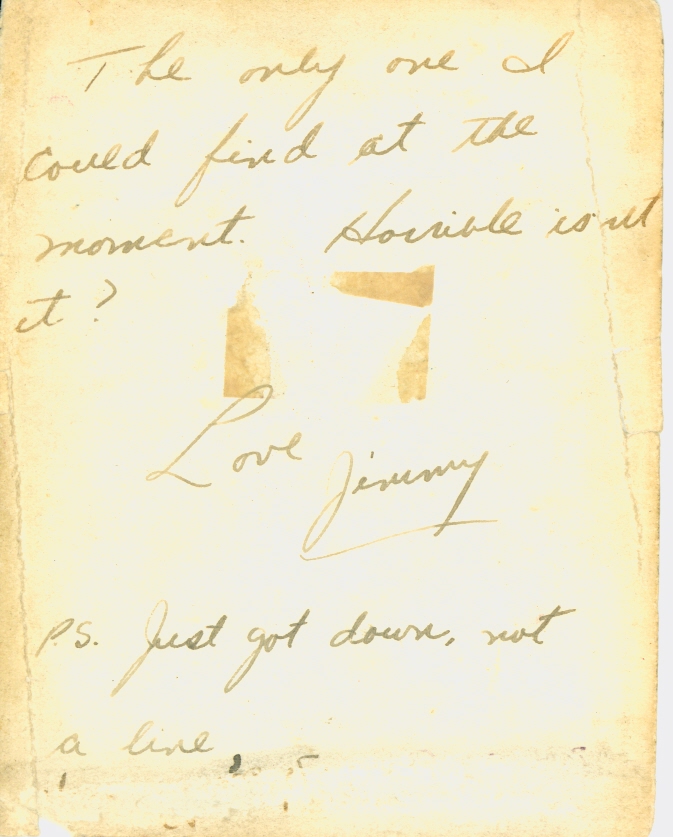 The only one I
could find at the
moment. Horrible isn't
it?
Love
Jimmy
P.S. Just got down, not
a line,